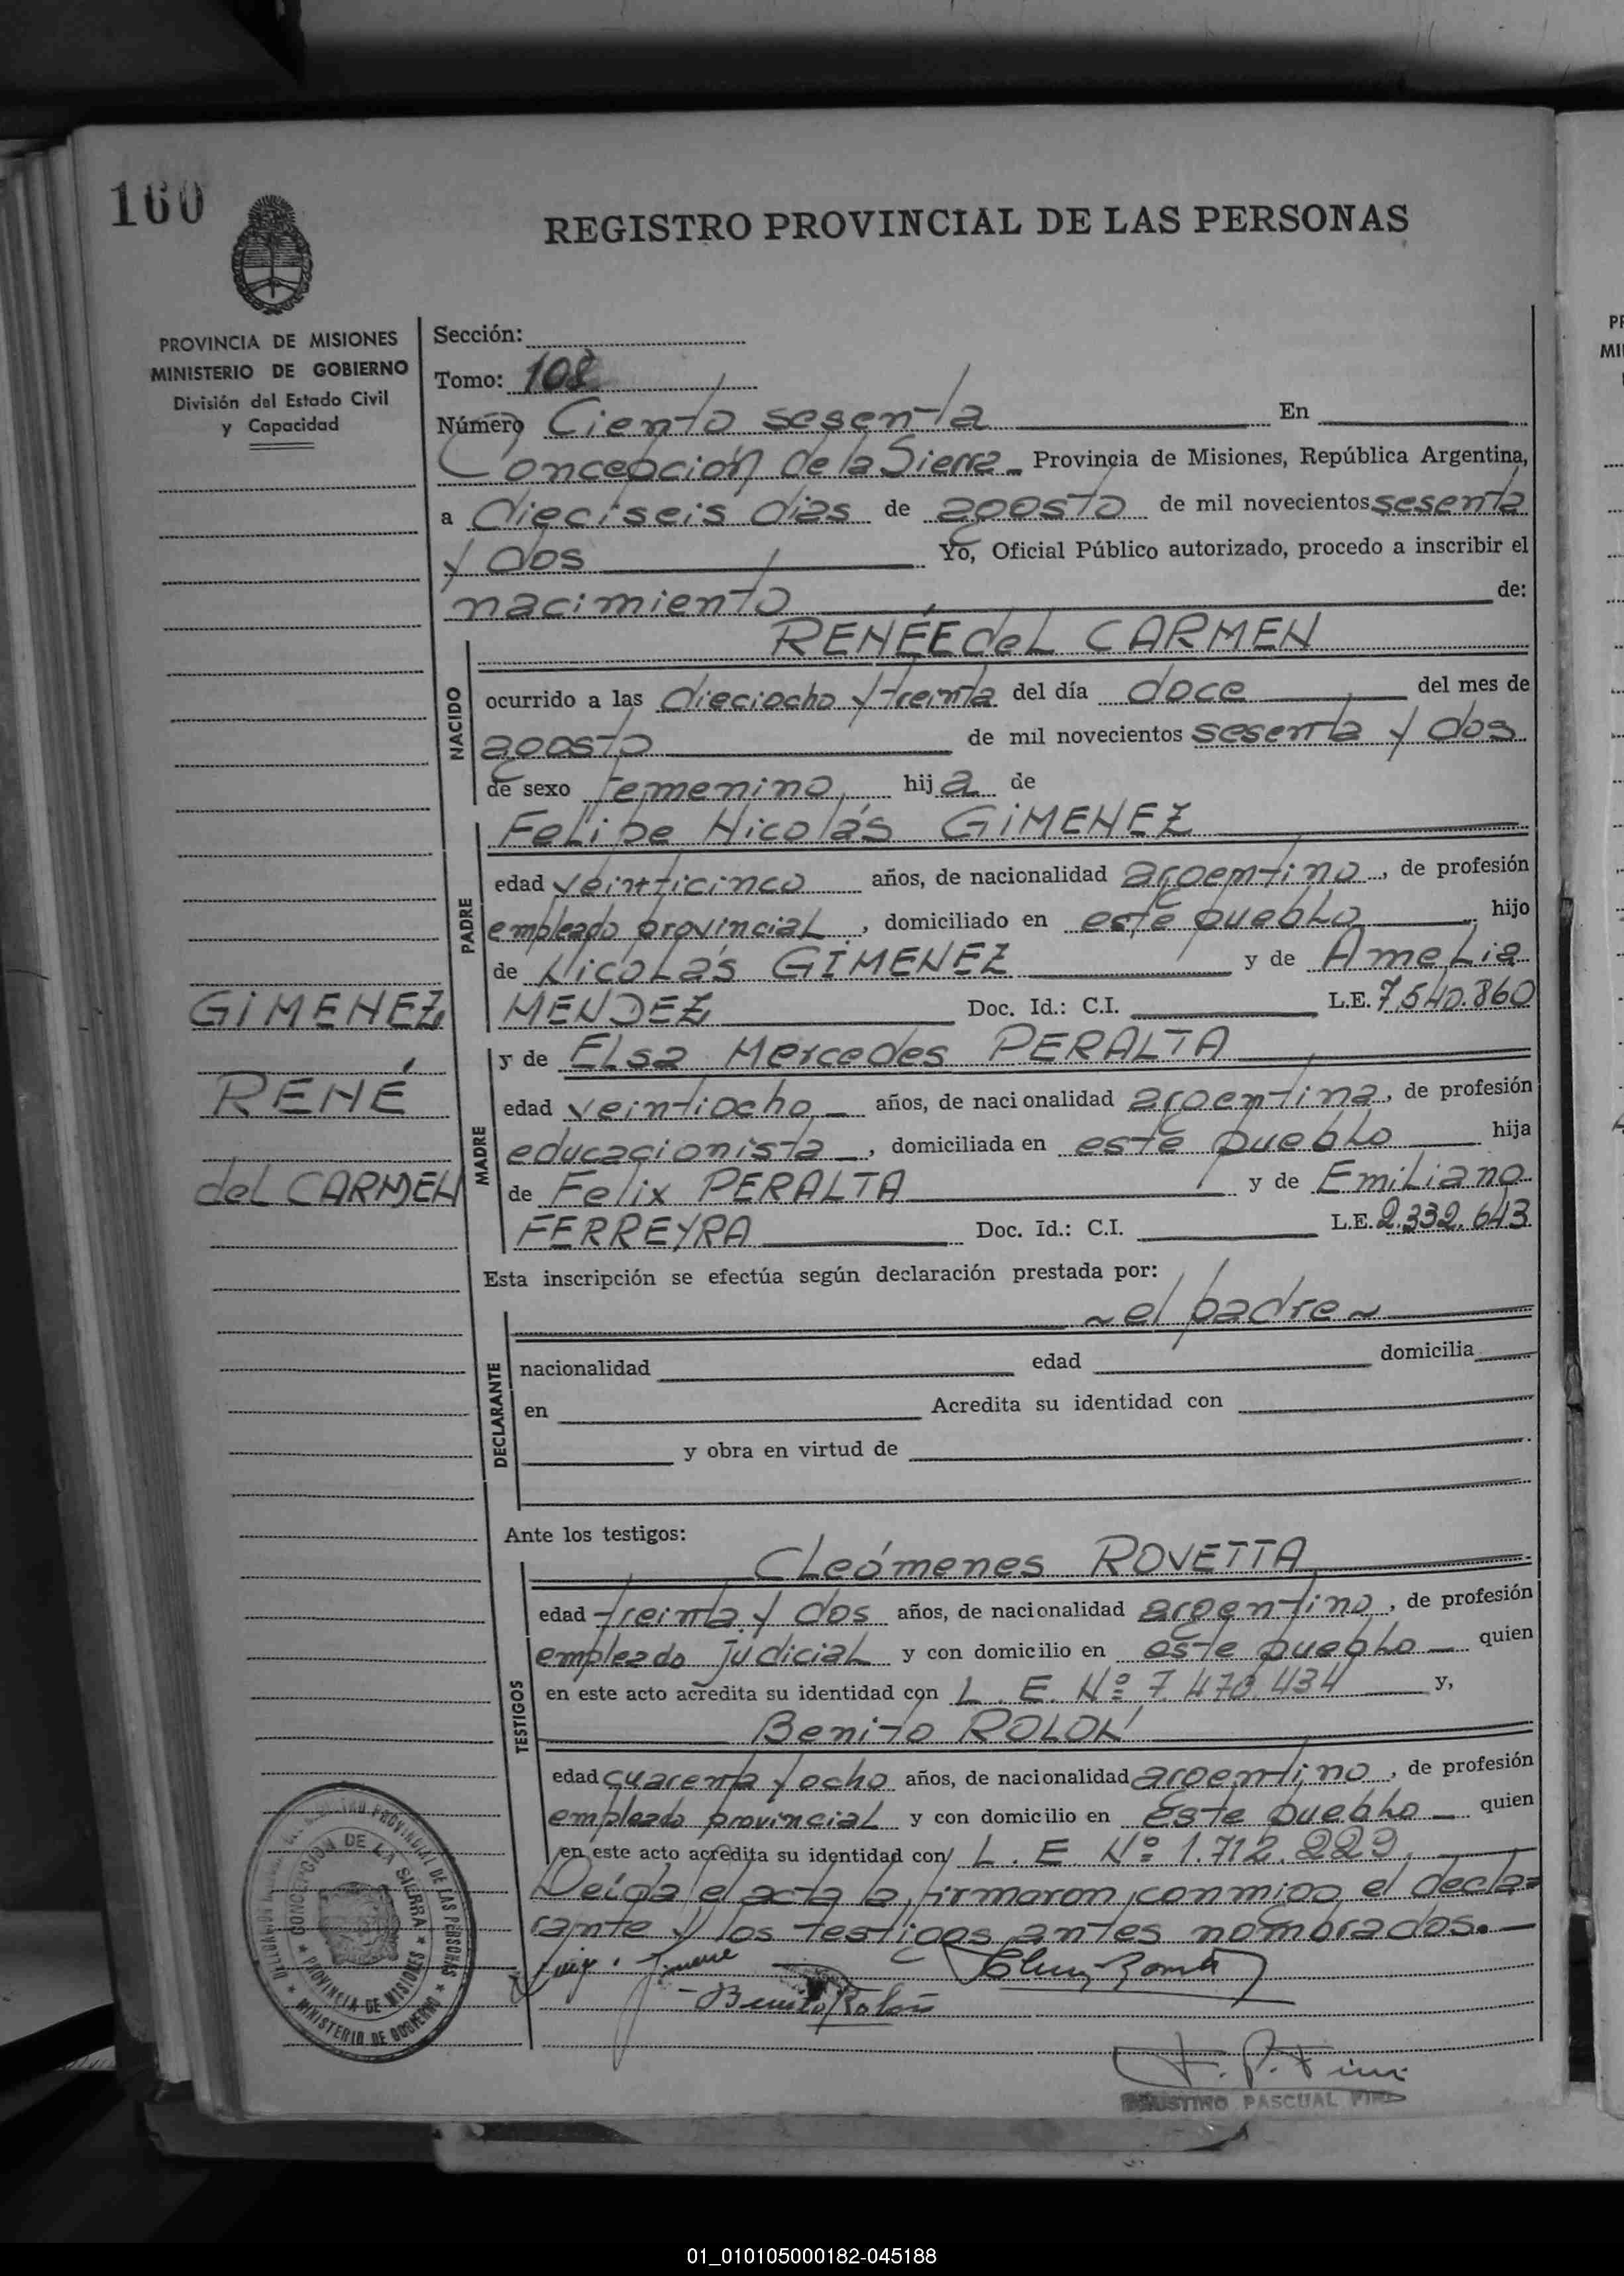 160
REGISTRO PROVINCIAL DE LAS PERSONAS
PROVINCIA DE MISIONES
MINISTERIO DE GOBIERNO
División del Estado Civil
y Capacidad
Sección:
Tomo: 108
Número Ciento sesenta En
Concepción de la Sierra Provincia de Misiones, República Argentina,
a dieciseis dias de agosto de mil novecientos sesenta
y dos Yo, Oficial Público autorizado, procedo a inscribir el
nacimiento de:
RENÉE del CARMEN
NACIDO
ocurrido a las dieciocho y treinta del día doce del mes de
agosto de mil novecientos sesenta y dos
de sexo femenino hija de
PADRE
Felipe Nicolás GIMENEZ
edad veinticinco años, de nacionalidad argentino, de profesión
empleado provincial, domiciliado en este pueblo hijo
de Nicolás GIMENEZ y de Amelia
MENDEZ Doc. Id.: C.I. L.E. 7.540.860
GIMENEZ
RENÉ
del CARMEN
MADRE
y de Elsa Mercedes PERALTA
edad veintiocho años, de nacionalidad argentina, de profesión
educacionista, domiciliada en este pueblo hija
de Felix PERALTA y de Emiliana
FERREYRA Doc. Id.: C.I. L.E. 2.332.643
Esta inscripción se efectúa según declaración prestada por:
~ el padre ~
DECLARANTE
nacionalidad edad domicilia
en Acredita su identidad con
y obra en virtud de
Ante los testigos:
TESTIGOS
Cleómenes ROVETTA
edad treinta y dos años, de nacionalidad argentino, de profesión
empleado judicial y con domicilio en este pueblo quien
en este acto acredita su identidad con L. E. Nº 7.473.434 y,
Benito ROLON
edad cuarenta y ocho años, de nacionalidad argentino, de profesión
empleado provincial y con domicilio en este pueblo quien
en este acto acredita su identidad con L. E. Nº 1.712.229.
Leída el acta la firmaron conmigo el decla-
rante y los testigos antes nombrados.
Benito Rolón
PASCUAL
REGISTRO PROVINCIAL DE LAS PERSONAS
CONCEPCION DE LA SIERRA
PROVINCIA DE MISIONES
MINISTERIO DE GOBIERNO
01_010105000182-045188